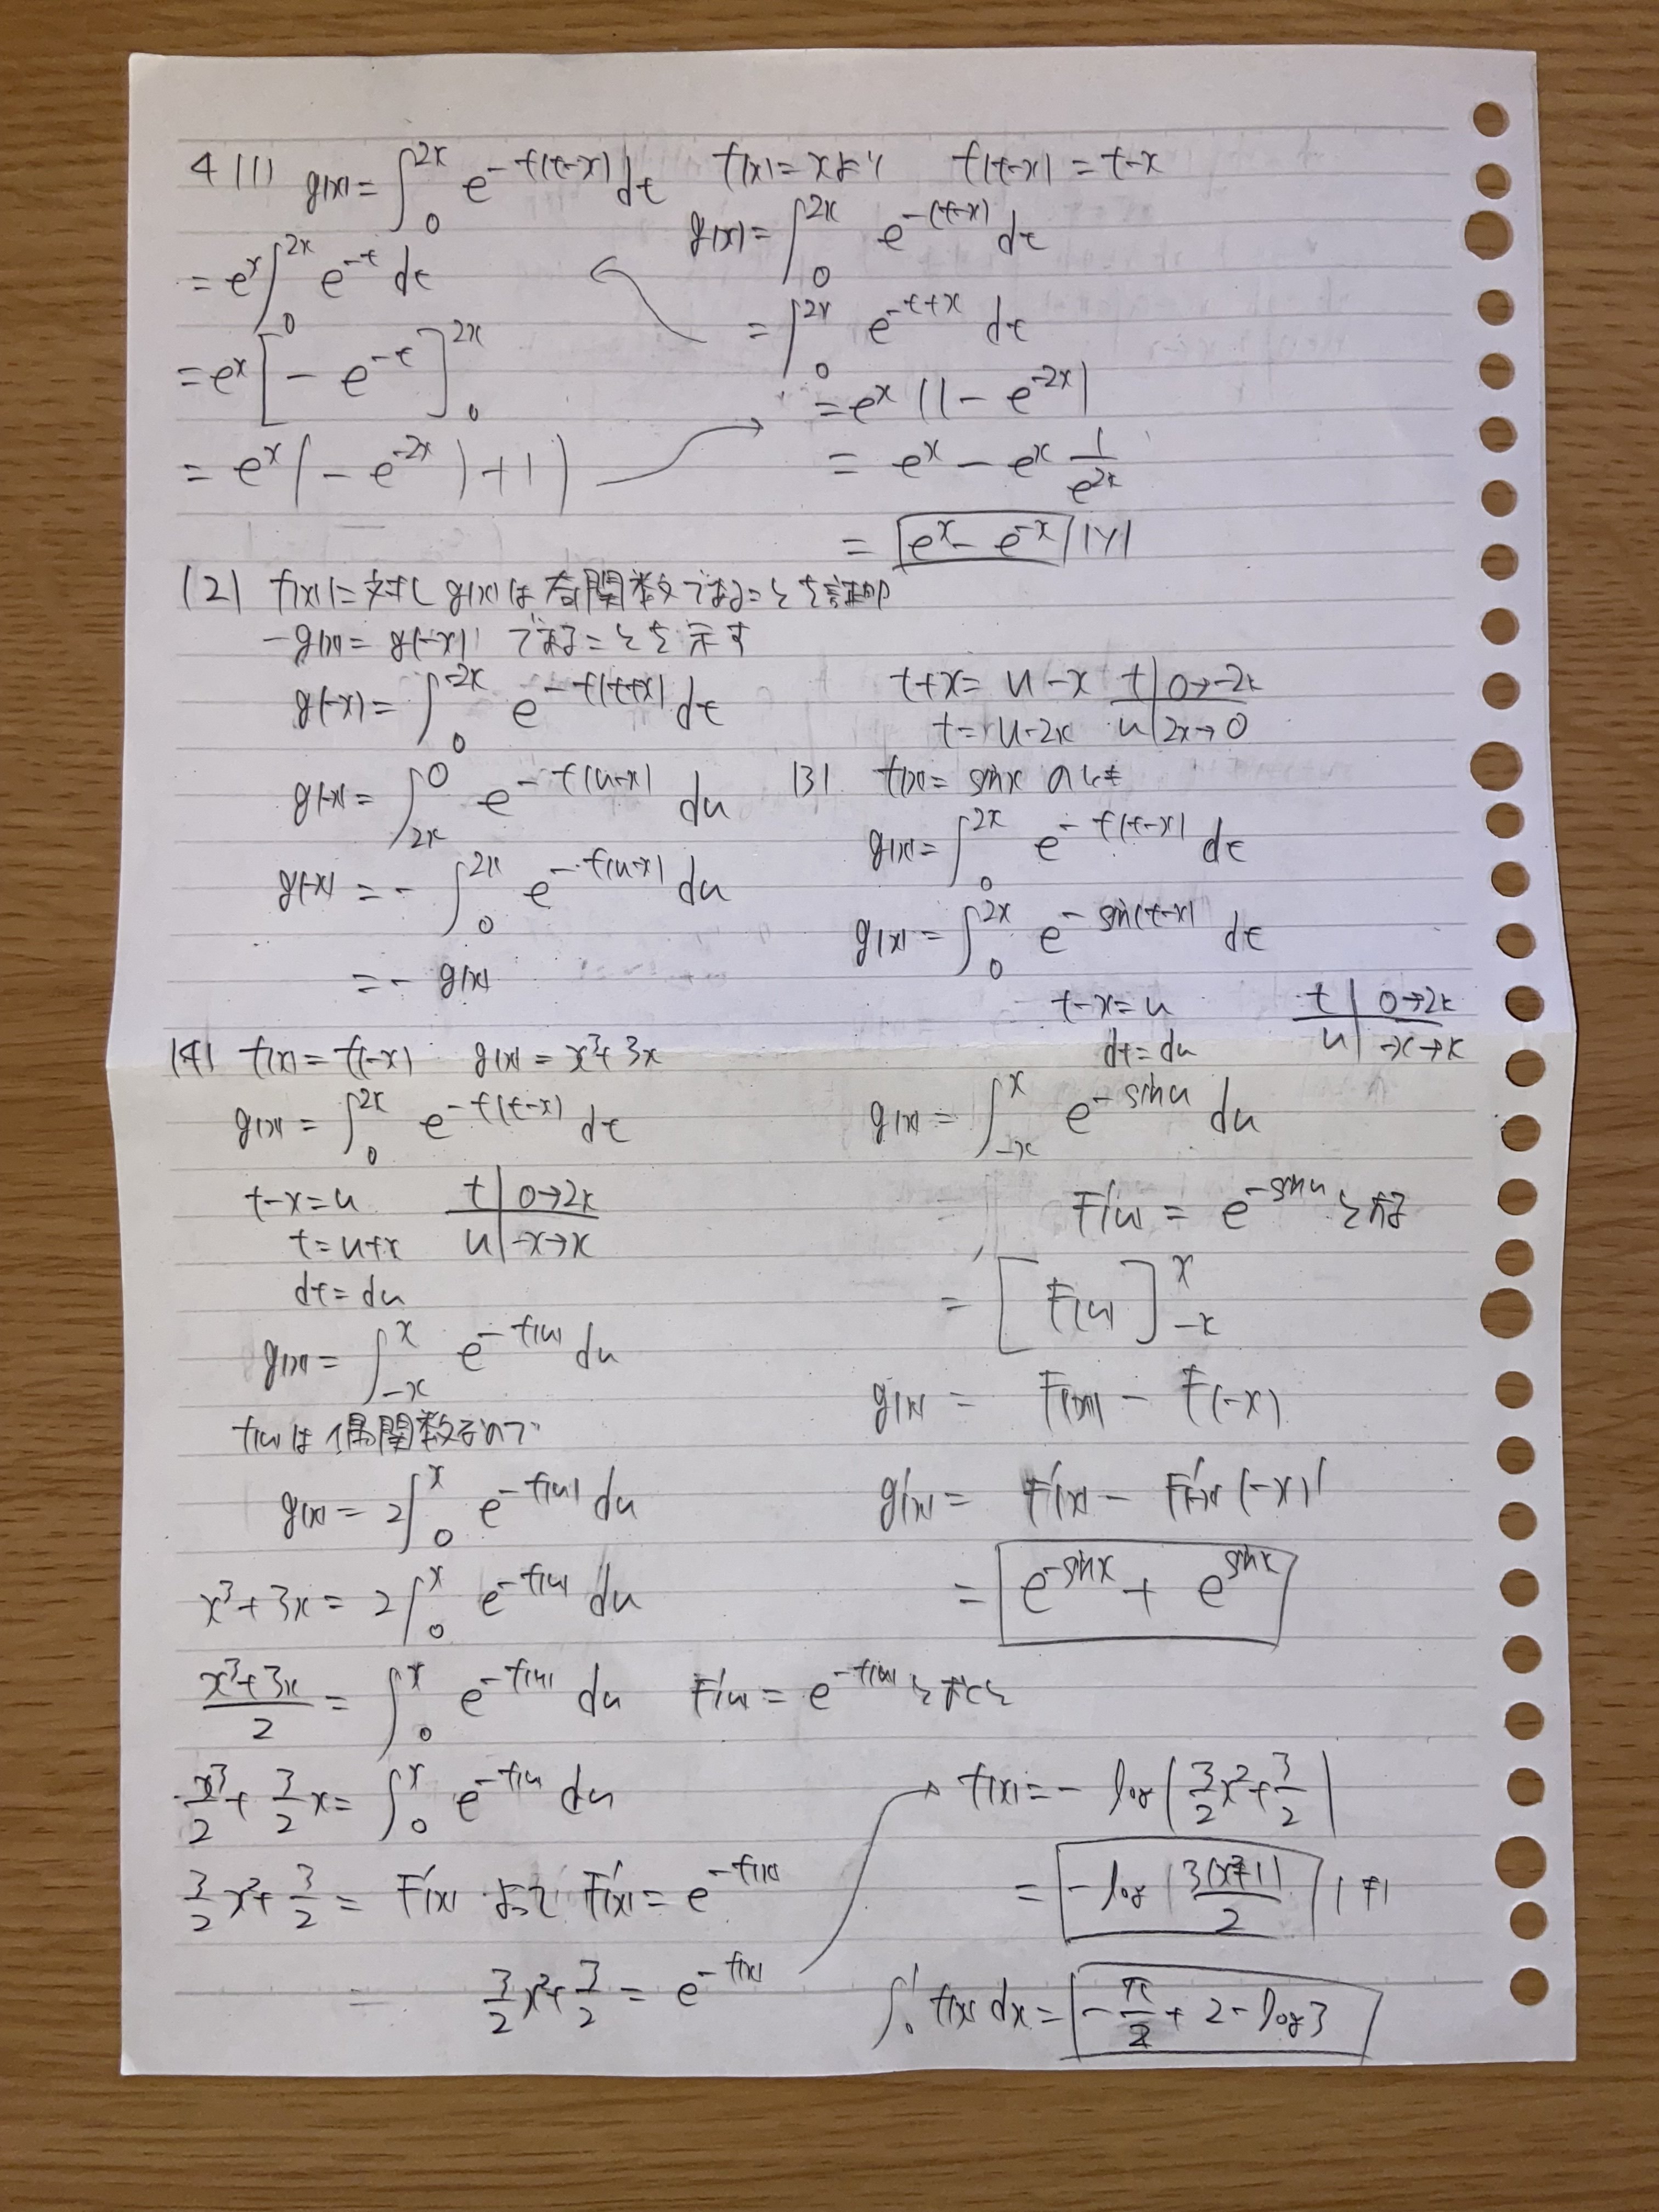 4 (1) g(x) = ∫₀^{2x} e^{-f(t-x)} dt f(x) = xより f(t-x) = t-x
g(x) = ∫₀^{2x} e^{-(t-x)} dt
= ∫₀^{2x} e^{-t+x} dt
= e^x ∫₀^{2x} e^{-t} dt
= e^x [-e^{-t}]₀^{2x}
= e^x (-e^{-2x}) + 1)
= e^x (1 - e^{-2x})
= e^x - e^x 1/e^{2x}
= e^x - e^{-x}
(2) f(x)に対しg(x)は奇関数であることを証明
-g(x) = g(-x) であることを示す
g(-x) = ∫₀^{-2x} e^{-f(t+x)} dt
t+x = u-x t | 0→-2x
t = u-2x u | 2x→0
g(-x) = ∫_{2x}^0 e^{-f(u-x)} du
g(-x) = - ∫₀^{2x} e^{-f(u-x)} du
= - g(x)
(3) f(x) = sinx のとき
g(x) = ∫₀^{2x} e^{-f(t-x)} dt
g(x) = ∫₀^{2x} e^{-sin(t-x)} dt
t-x = u t | 0→2x
dt = du u | -x→x
g(x) = ∫_{-x}^x e^{-sinu} du
F'(u) = e^{-sinu} とする
= [F(u)]_{-x}^x
g(x) = F(x) - F(-x)
g'(x) = F'(x) - F'(-x) (-x)'
= e^{-sinx} + e^{sinx}
(4) f(x) = f(-x) g(x) = x³+3x
g(x) = ∫₀^{2x} e^{-f(t-x)} dt
t-x = u t | 0→2x
t = u+x u | -x→x
dt = du
g(x) = ∫_{-x}^x e^{-f(u)} du
f(u)は偶関数なので
g(x) = 2∫₀^x e^{-f(u)} du
x³+3x = 2∫₀^x e^{-f(u)} du
(x³+3x)/2 = ∫₀^x e^{-f(u)} du F'(u) = e^{-f(u)} とすると
x³/2 + 3/2 x = ∫₀^x e^{-f(u)} du
3/2 x² + 3/2 = F'(x) よって F'(x) = e^{-f(x)}
3/2 x² + 3/2 = e^{-f(x)}
f(x) = - log(3/2 x² + 3/2)
= -log(3(x²+1)/2)
∫₀^1 f(x) dx = -π/2 + 2 - log3